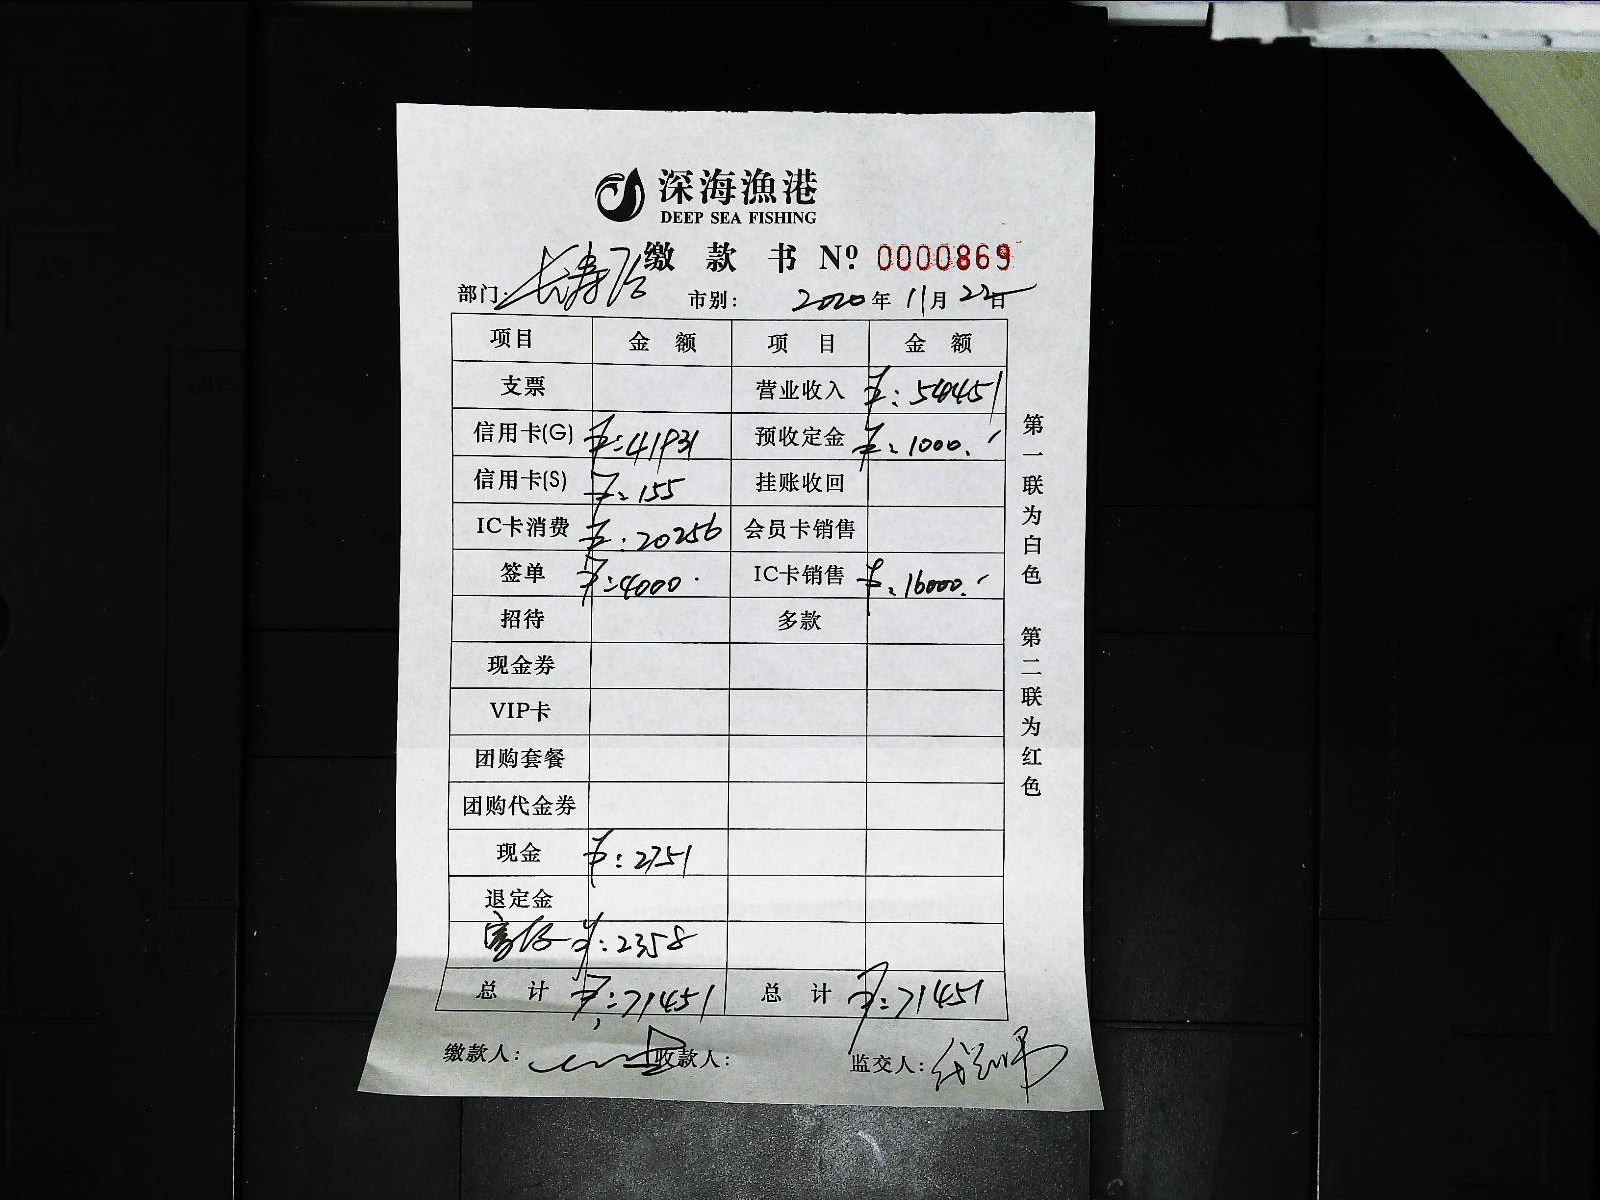 深海漁港
DEEP SEA FISHING
缴款书 Nº 0000869
部门: 长寿店 市别: 2020年11月22日
项目 金额 项目 金额
支票 营业收入 ¥:54451
信用卡(G) ¥:41931 预收定金 ¥:1000.
信用卡(S) ¥:155 挂账收回
IC卡消费 ¥:20256 会员卡销售
签单 ¥:4000. IC卡销售 ¥:16000.
招待 多款
现金券
VIP卡
团购套餐
团购代金券
现金 ¥:2751
退定金
¥:2358
总计 ¥:71451 总计 ¥:71451
缴款人: 收款人: 监交人:
第一联为白色 第二联为红色